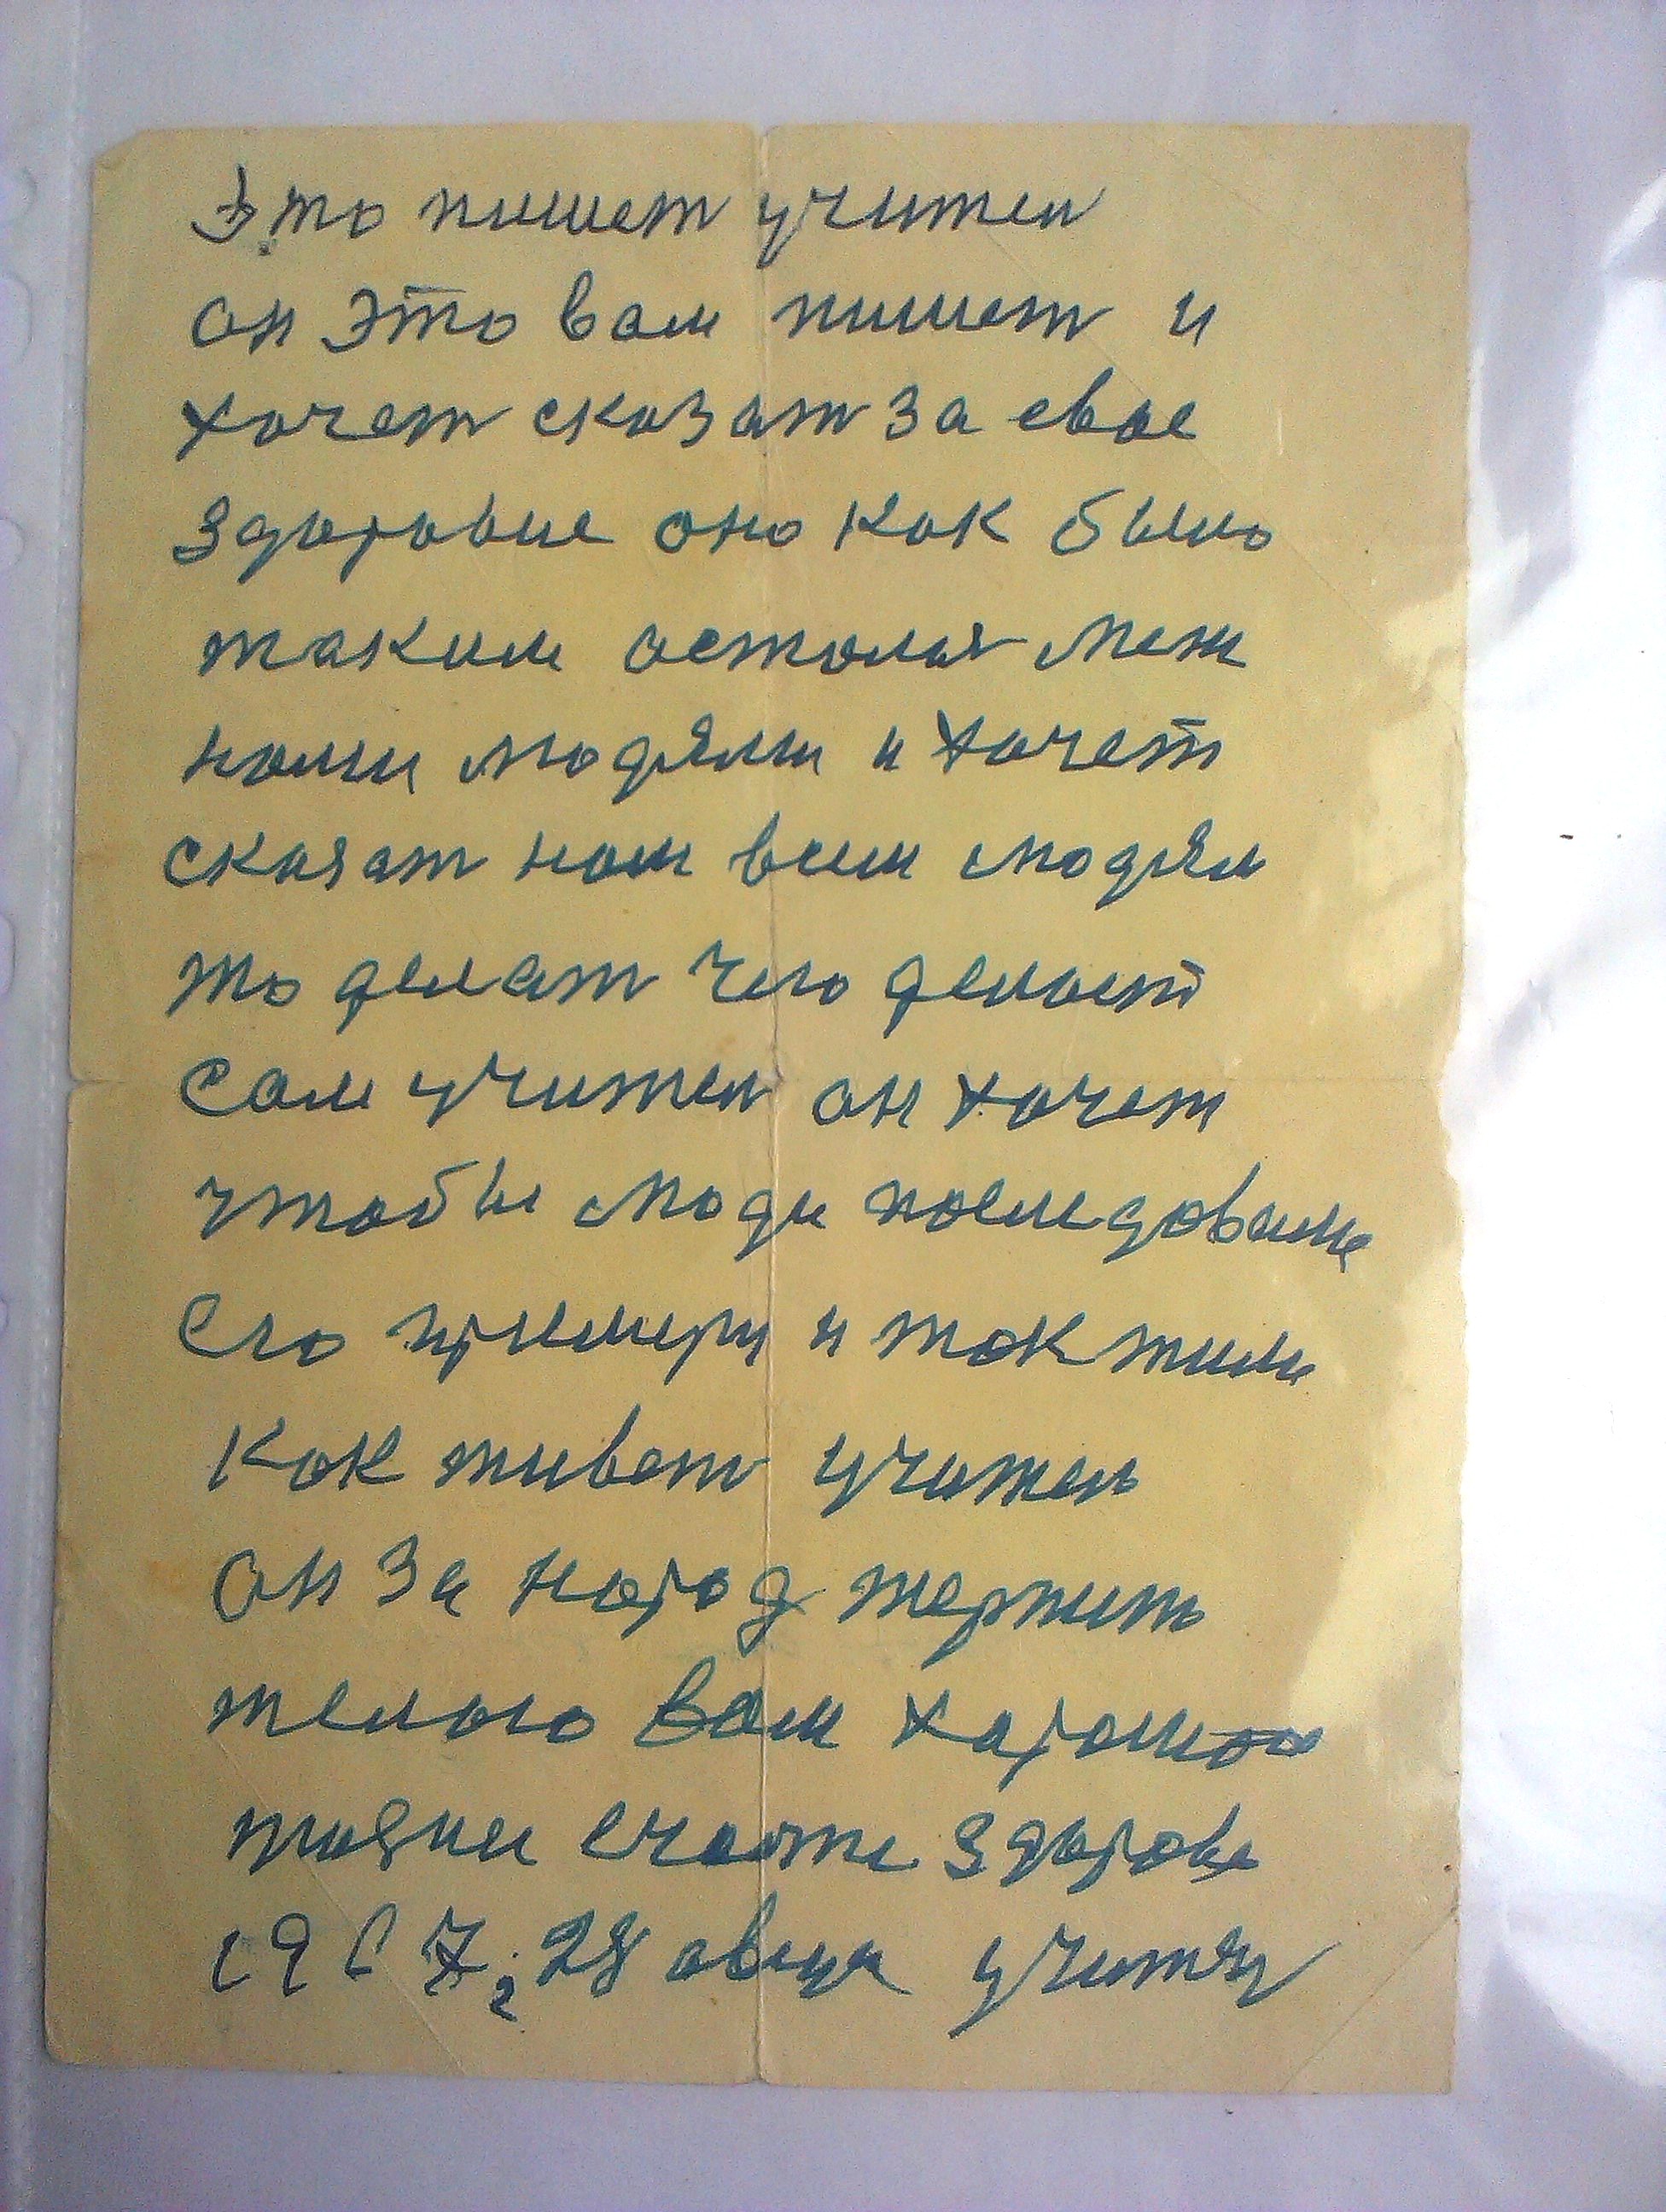 Это пишет учител
он это вам пишет и
хочет сказат за свае
здоровие оно как было
таким осталыя меж
нами людями и хочет
сказат нам всем людям
то делат чего делает
Сам учител он хочет
чтобы люди последовали
Его примеру и так жили
Как живет учитель
Он за народ терпить
желаю вам харошое
жизни счасте здорове
1967, 28 авгу учитял